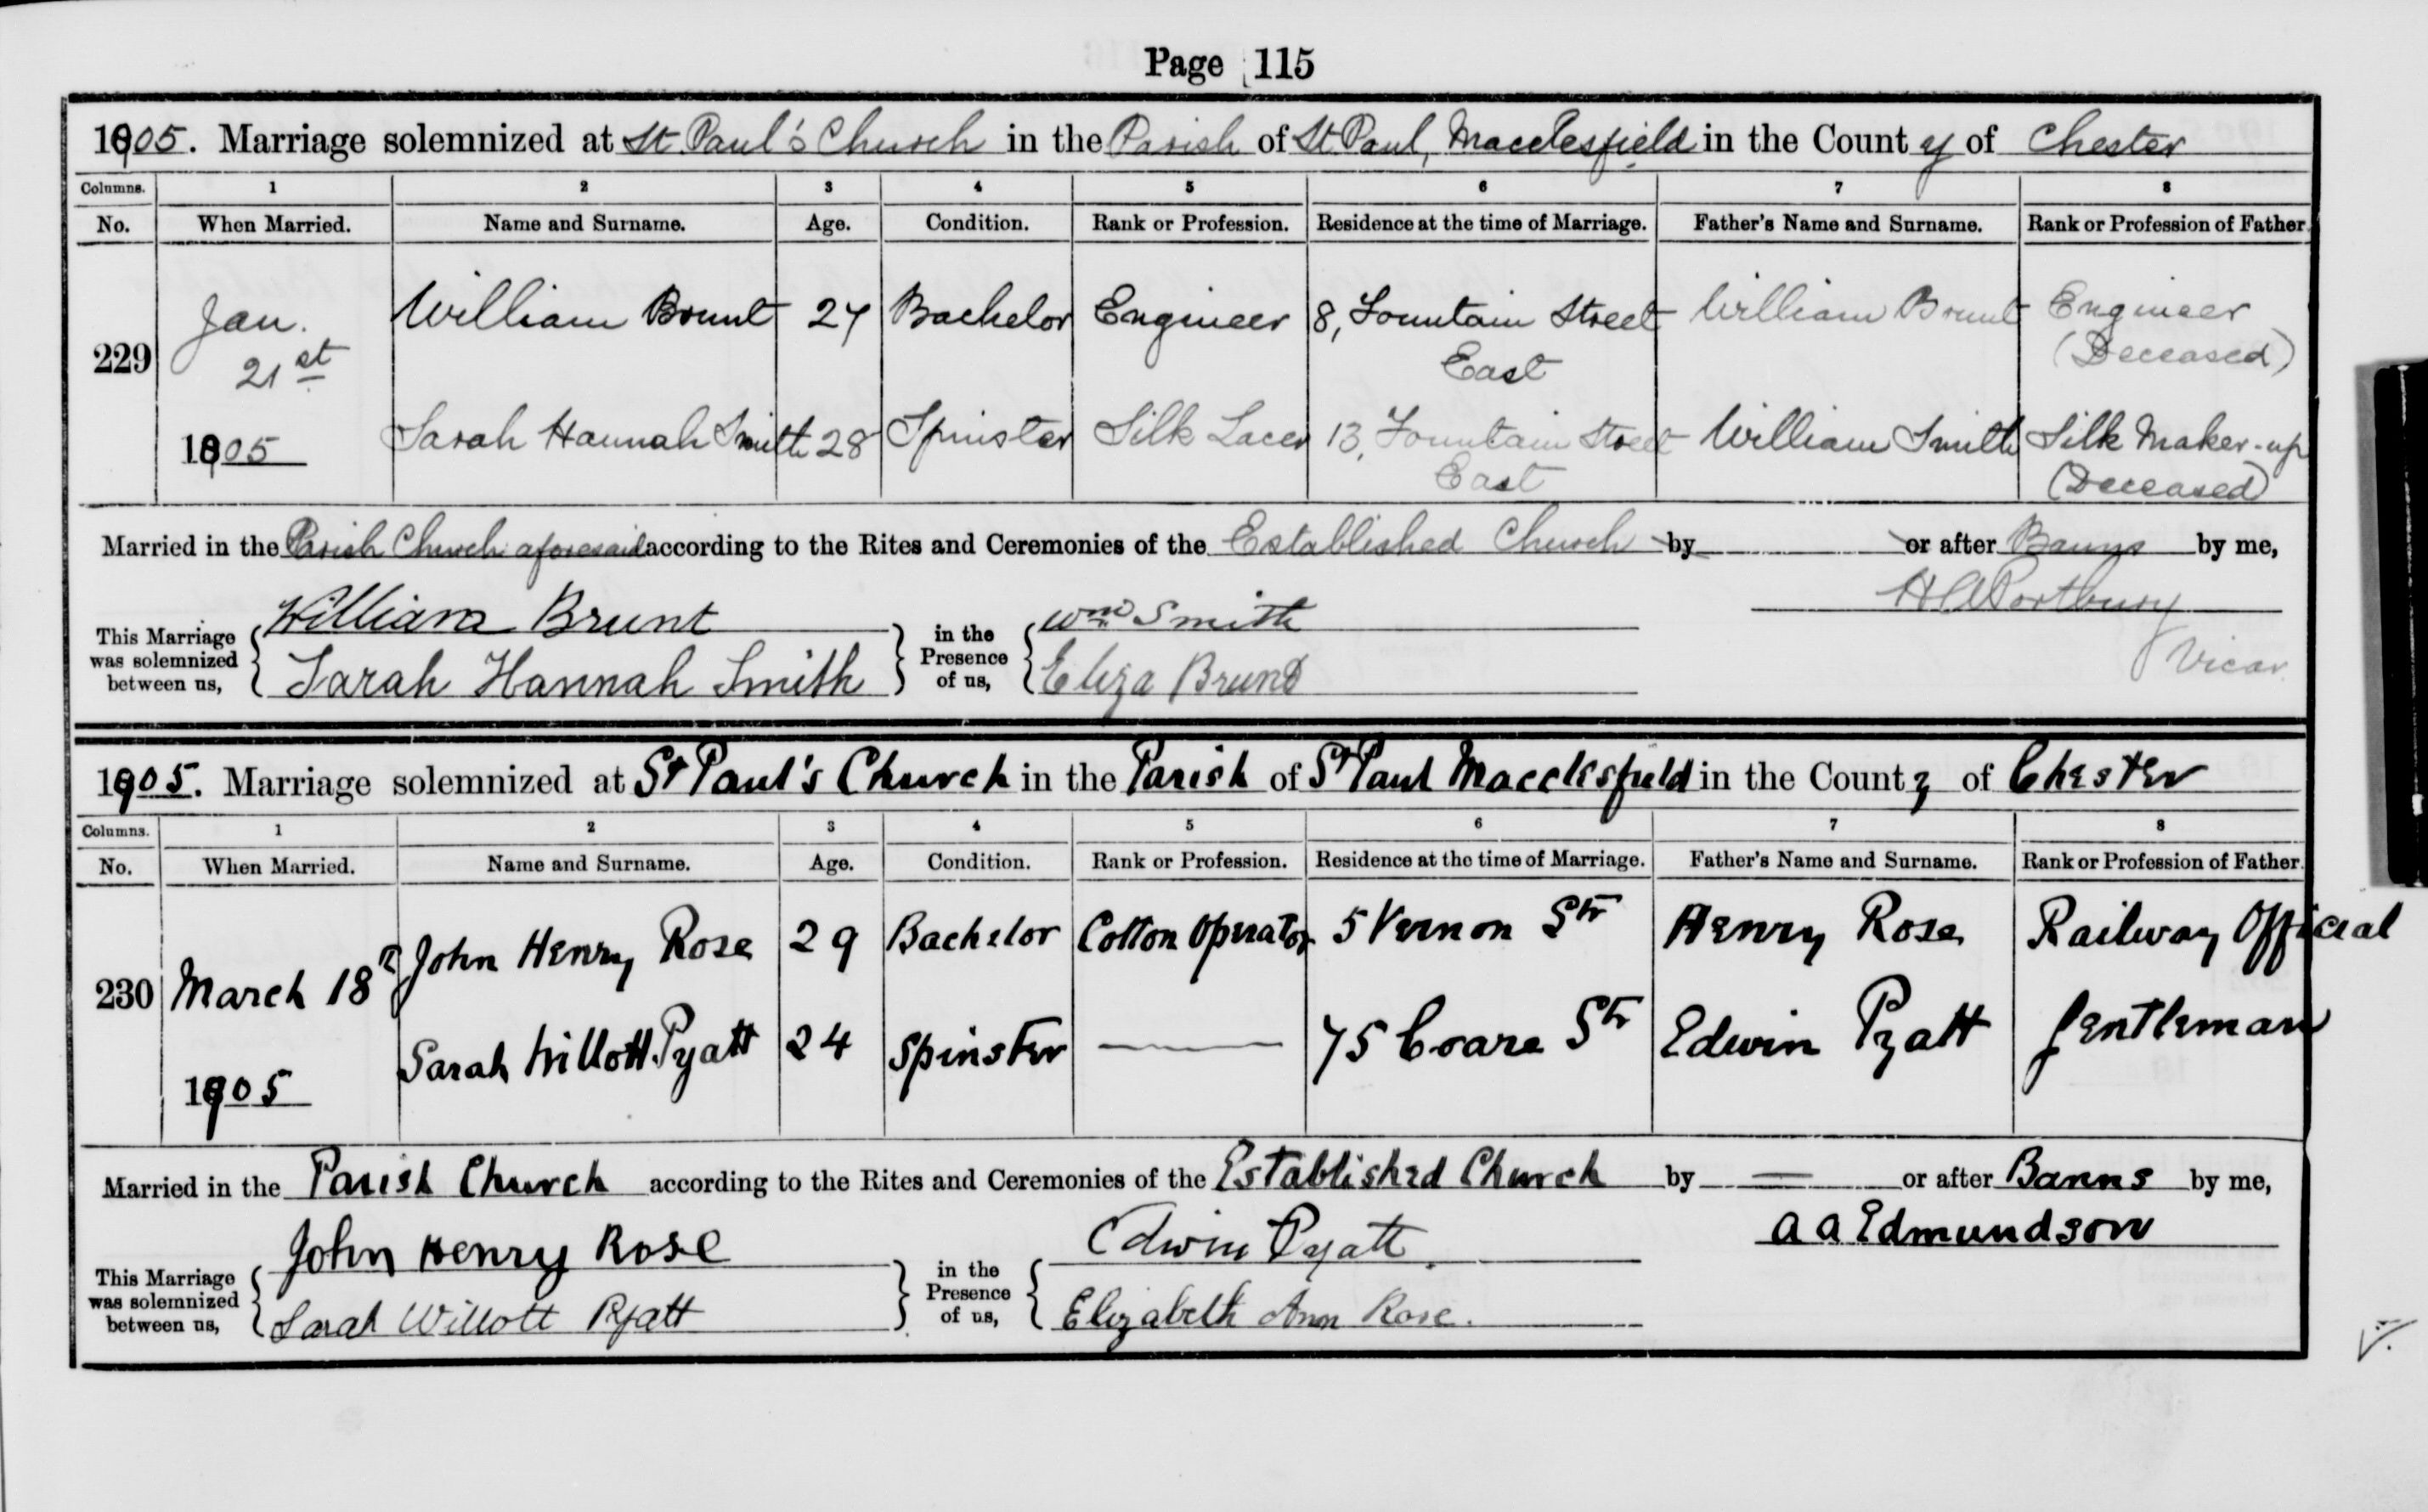 Page 115
1905. Marriage solemnized at St. Paul's Church in the Parish of St. Paul, Macclesfield in the County of Chester
Columns. 1 2 3 4 5 6 7 8
No. When Married. Name and Surname. Age. Condition. Rank or Profession. Residence at the time of Marriage. Father's Name and Surname. Rank or Profession of Father.
229 Jan. 21st 1905 William Brunt 27 Bachelor Engineer 8, Fountain Street East William Brunt Engineer (Deceased)
Sarah Hannah Smith 28 Spinster Silk Lacer 13, Fountain Street East William Smith Silk Maker-up (Deceased)
Married in the Parish Church aforesaid according to the Rites and Ceremonies of the Established Church by or after Banns by me,
This Marriage was solemnized between us, William Brunt in the Presence of us, Wm Smith
Sarah Hannah Smith Eliza Brunt
Vicar
1905. Marriage solemnized at St Paul's Church in the Parish of St Paul Macclesfield in the County of Chester
Columns. 1 2 3 4 5 6 7 8
No. When Married. Name and Surname. Age. Condition. Rank or Profession. Residence at the time of Marriage. Father's Name and Surname. Rank or Profession of Father.
230 March 18th 1905 John Henry Rose 29 Bachelor Cotton Operator 5 Vernon Str Henry Rose Railway Official
Sarah Willott Pyatt 24 Spinster — 75 Coare Str Edwin Pyatt Gentleman
Married in the Parish Church according to the Rites and Ceremonies of the Established Church by — or after Banns by me,
A A Edmundson
This Marriage was solemnized between us, John Henry Rose in the Presence of us, Edwin Pyatt.
Sarah Willott Pyatt Elizabeth Ann Rose.